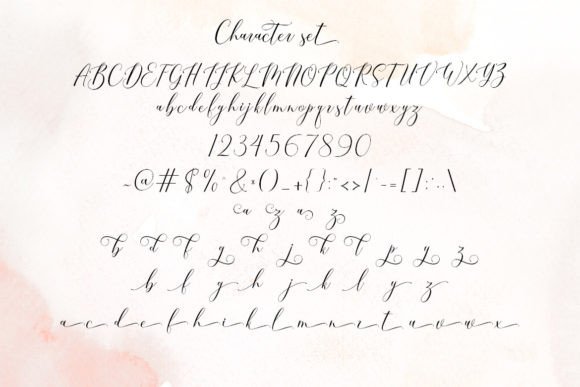 Character set
ABCDEFGHIJKLMNOPQRSTUVWXYZ
abcdefghijklmnopqrstuvwxyz
1234567890
~@#$%^&*()_+{}:"<>|`-=[];'.,\
a z a z
b d f g h j k l p y z
b f g h j k l y z
a c d e f h i k l m n r t u v w x